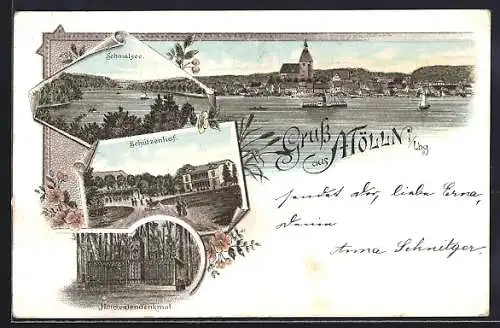 Schmalsee.
Gruß
aus MÖLLN i/Lbg
Schützenhof.
sendet Dir, liebe Erna,
Deine
Anna Schnitger.